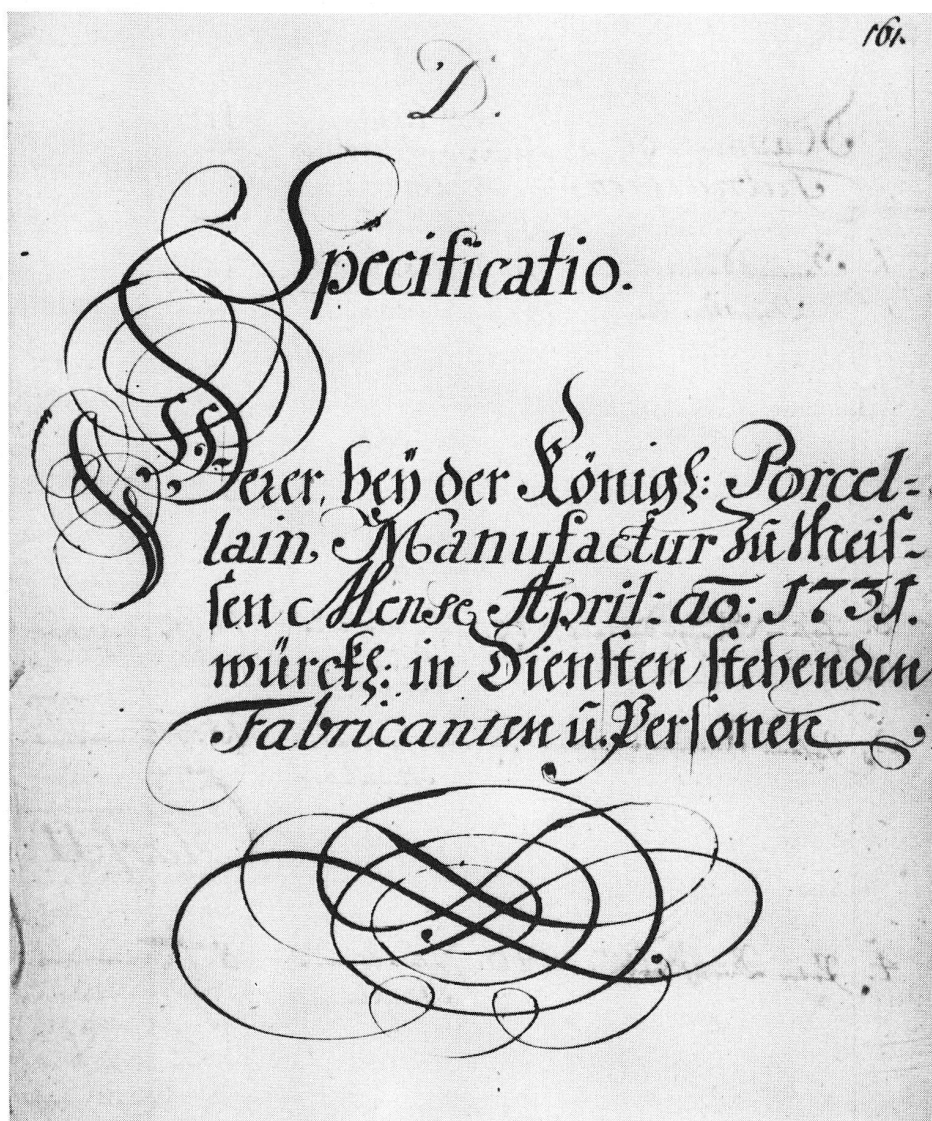 161.
D.
Specificatio.
Derer, beÿ der Königl: Porcel=
lain, Manufactur zu Meis=
sen Mense, April: ao: 1731.
würckl: in Diensten stehenden
Fabricanten ũ. Personen